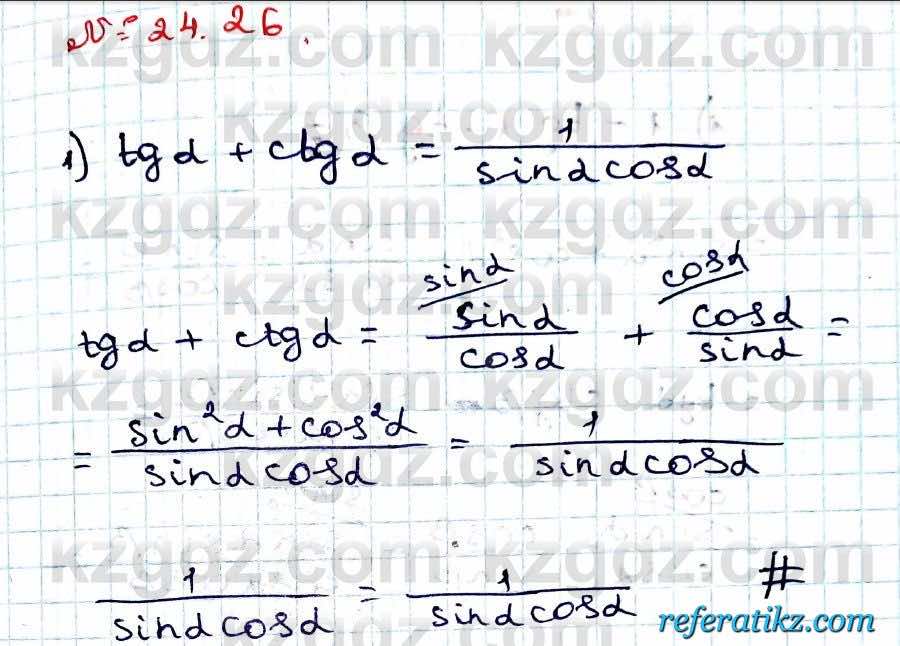 № 24.26.
1) tg α + ctg α = 1 / (sin α cos α)
tg α + ctg α = sin α / cos α (sin α) + cos α / sin α (cos α) =
= (sin²α + cos²α) / (sin α cos α) = 1 / (sin α cos α)
1 / (sin α cos α) = 1 / (sin α cos α) #
kzgdz.com
referatikz.com